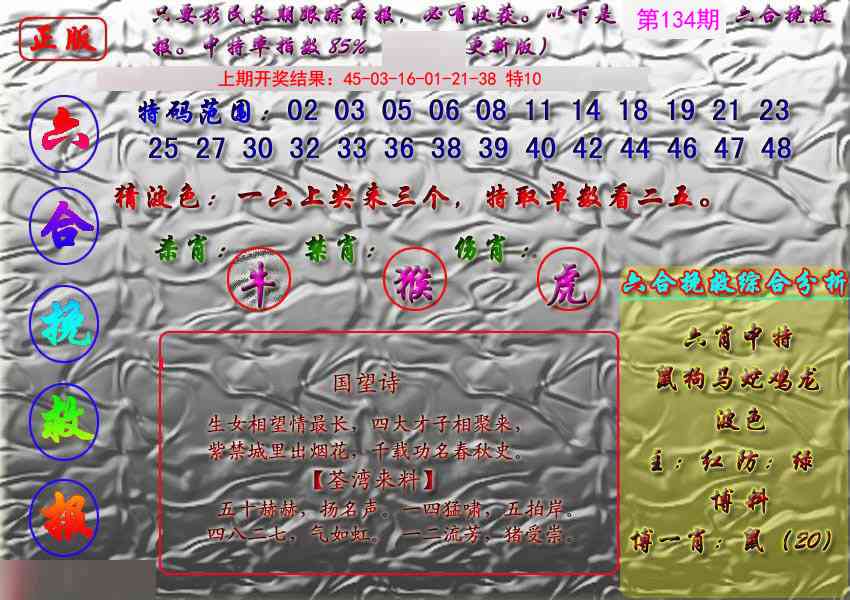 正版
只要彩民长期跟踪本报，必有收获。以下是 第134期 六合挽救
报。中特率指数85% 更新版）
上期开奖结果：45-03-16-01-21-38 特10
特码范围：02 03 05 06 08 11 14 18 19 21 23
25 27 30 32 33 36 38 39 40 42 44 46 47 48
猜波色：一六上奖来三个，特取单数看二五。
六合挽救报
杀肖：牛 禁肖：猴 伤肖：虎
国望诗
生女相望情最长，四大才子相聚来，
紫禁城里出烟花，千载功名春秋史。
【荃湾来料】
五十赫赫，扬名声。一四猛啸，五拍岸。
四八二七，气如虹。 一二流芳，猪受崇。
六合挽救综合分析
六肖中特
鼠狗马蛇鸡龙
波色
主：红 防：绿
博料
博一肖：鼠（20）